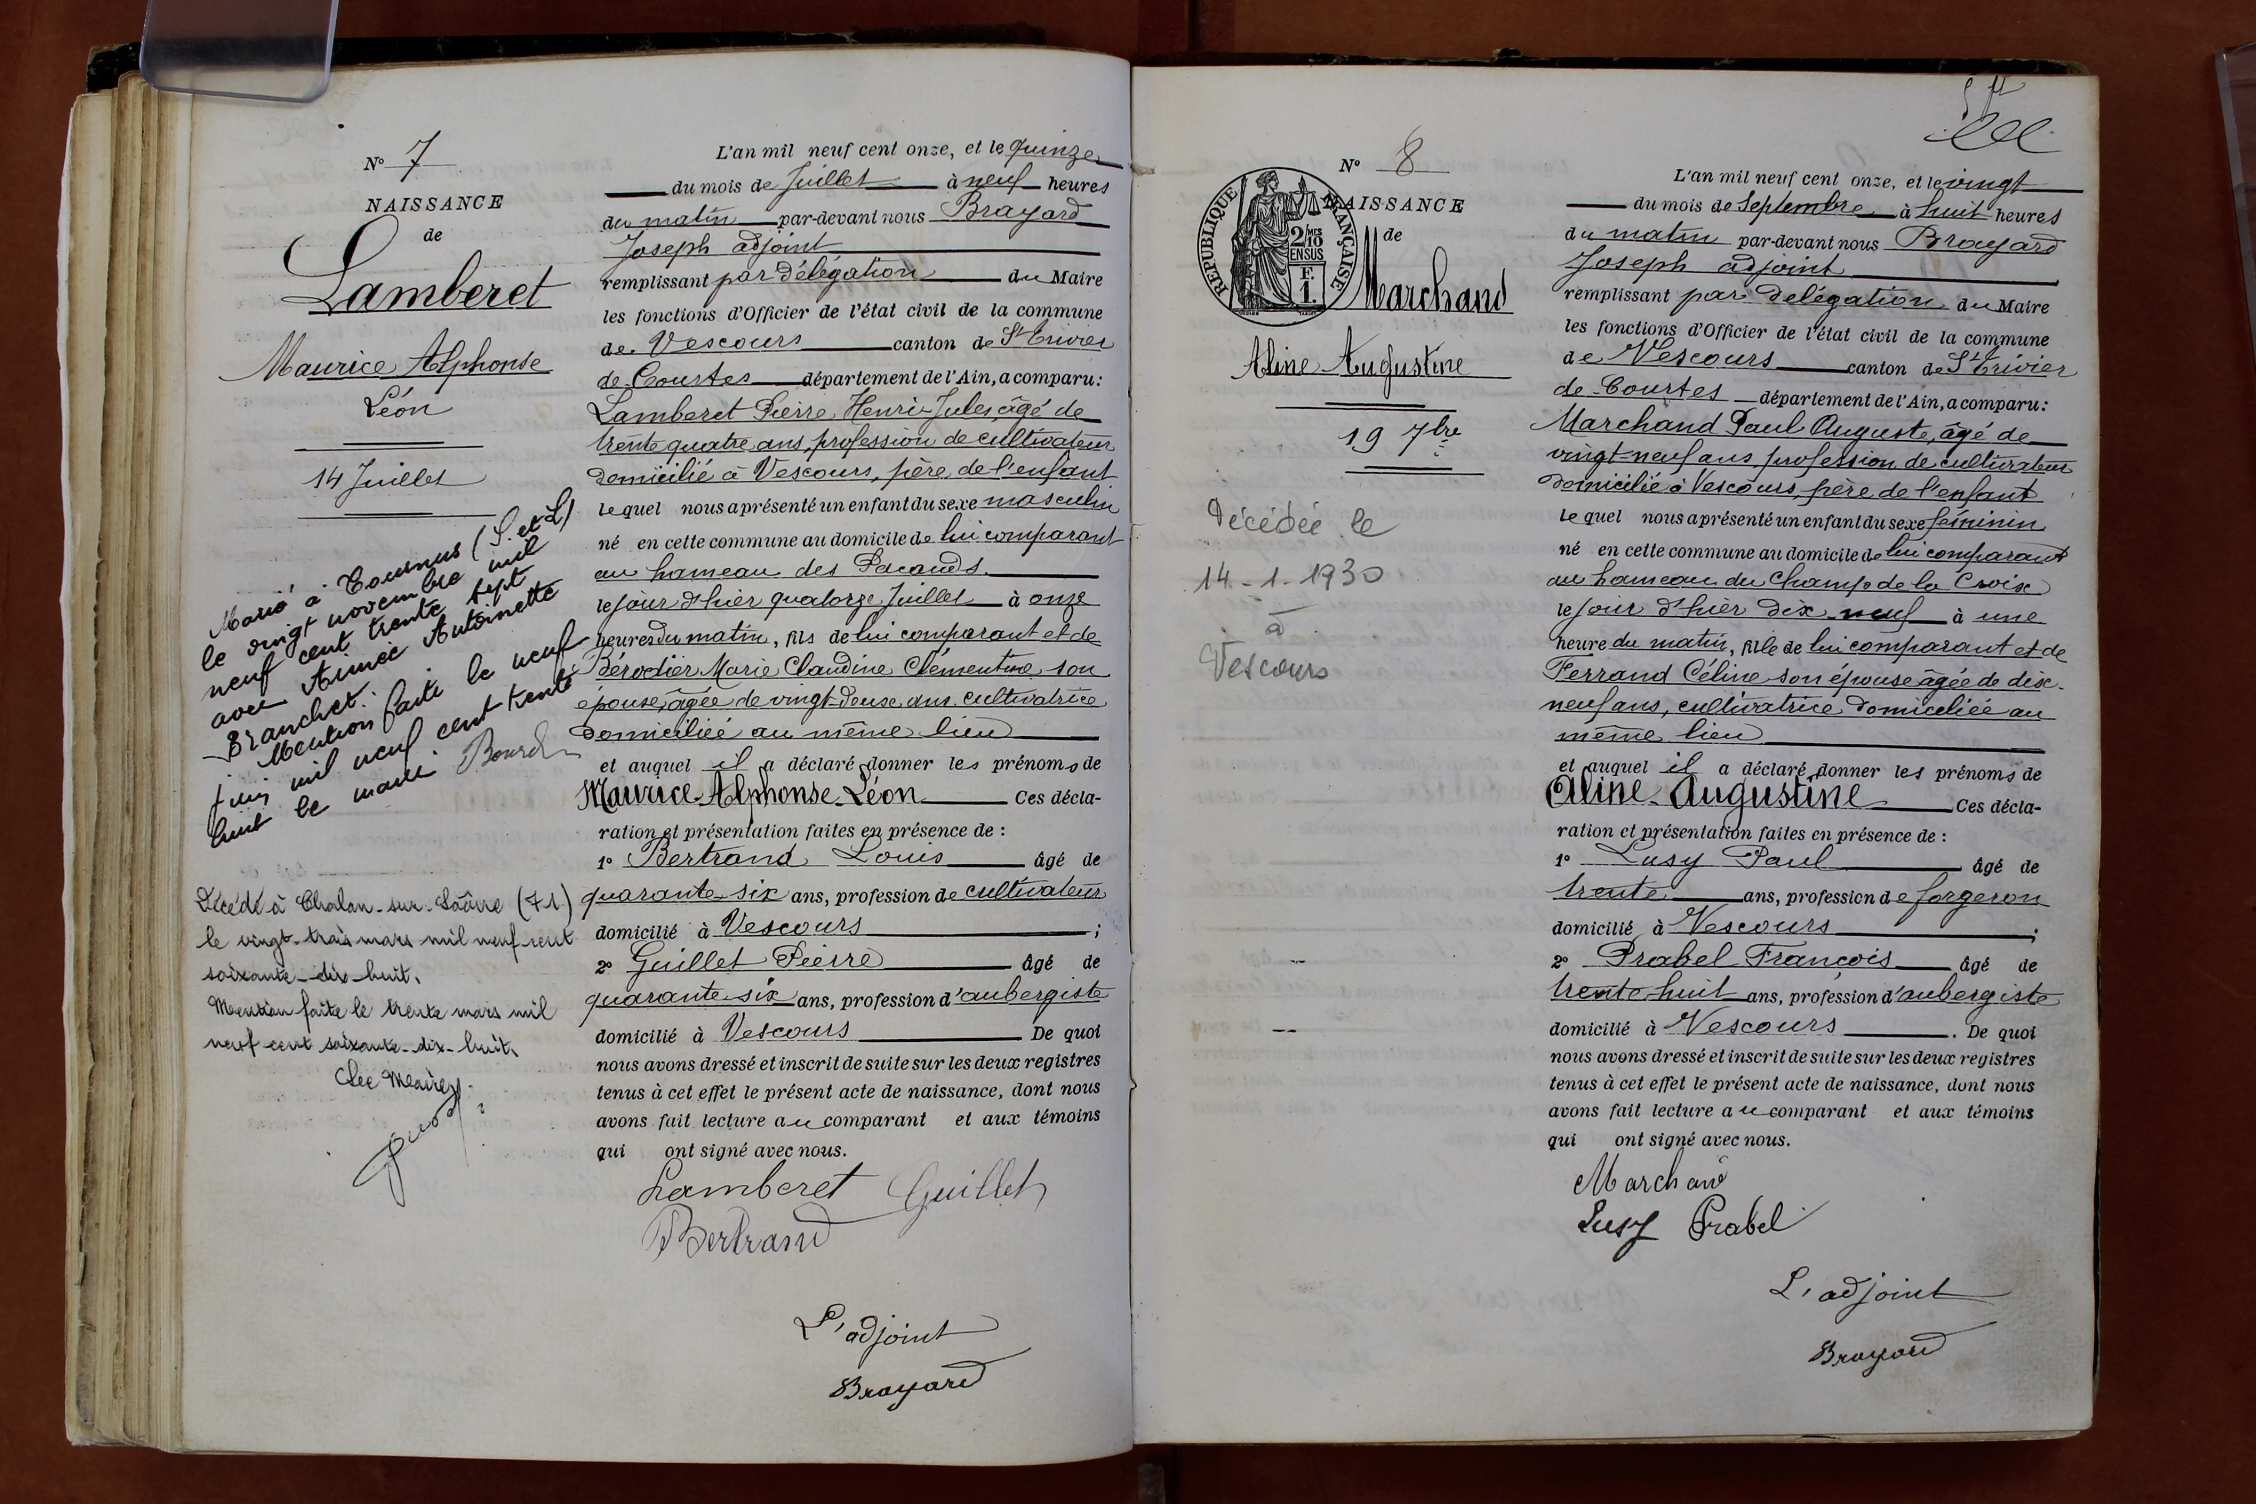 N° 7
NAISSANCE
de
Lamberet
Maurice Alphonse
Léon
14 Juillet
Marié à Tournus (S. et L)
le vingt novembre mil
neuf cent trente sept
avec Aimée Antoinette
Branchet.
Mention faite le neuf
juin mil neuf cent trente
huit le maire
Décédé à Chalon-sur-Saône (71)
le vingt-trois mars mil neuf cent
soixante-dix-huit.
Mention faite le trente mars mil
neuf cent soixante-dix-huit.
Le Maire,
L'an mil neuf cent onze, et le quinze
du mois de Juillet à neuf heures
du matin par-devant nous Brayard
Joseph adjoint
remplissant par délégation du Maire
les fonctions d'Officier de l'état civil de la commune
de Vescours canton de St Trivier
de Courtes département de l'Ain, a comparu:
Lamberet Pierre Henri Jules, âgé de
trente quatre ans, profession de cultivateur
domicilié à Vescours, père de l'enfant
lequel nous a présenté un enfant du sexe masculin
né en cette commune au domicile de lui comparant
au hameau des Pacauds
le jour d'hier quatorze Juillet à onze
heures du matin, fils de lui comparant et de
Bérodier Marie Claudine Clémentine son
épouse, âgée de vingt-deux ans cultivatrice
domiciliée au même lieu
et auquel il a déclaré donner les prénoms de
Maurice-Alphonse-Léon Ces décla-
ration et présentation faites en présence de :
1° Bertrand Louis âgé de
quarante-six ans, profession de cultivateur
domicilié à Vescours ;
2° Guillet Pierre âgé de
quarante-six ans, profession d'aubergiste
domicilié à Vescours De quoi
nous avons dressé et inscrit de suite sur les deux registres
tenus à cet effet le présent acte de naissance, dont nous
avons fait lecture au comparant et aux témoins
qui ont signé avec nous.
Lamberet Guillet
Bertrand
L'adjoint
Brayard
N° 8
NAISSANCE
de
RÉPUBLIQUE FRANÇAISE
2/10
EN SUS
F.
1.
Marchand
Aline Augustine
19 7bre
Décédée le
14-1-1930
à
Vescours
L'an mil neuf cent onze, et le vingt
du mois de Septembre à huit heures
du matin par-devant nous Brayard
Joseph adjoint
remplissant par delégation du Maire
les fonctions d'Officier de l'état civil de la commune
de Vescours canton de St Trivier
de Courtes département de l'Ain, a comparu:
Marchand Paul Auguste, âgé de
vingt-neuf ans, profession de cultivateur
domicilié à Vescours, père de l'enfant
lequel nous a présenté un enfant du sexe féminin
né en cette commune au domicile de lui comparant
au hameau du Champ de la Croix
le jour d'hier dix-neuf à une
heure du matin, fille de lui comparant et de
Ferrand Céline son épouse âgée de dix-
neuf ans, cultivatrice domiciliée au
même lieu
et auquel il a déclaré donner les prénoms de
Aline-Augustine Ces décla-
ration et présentation faites en présence de :
1° Lusy Paul âgé de
trente ans, profession de forgeron
domicilié à Vescours ;
2° Prabel François âgé de
trente huit ans, profession d'aubergiste
domicilié à Vescours. De quoi
nous avons dressé et inscrit de suite sur les deux registres
tenus à cet effet le présent acte de naissance, dont nous
avons fait lecture au comparant et aux témoins
qui ont signé avec nous.
Marchand
Lusy Prabel
L'adjoint
Brayard